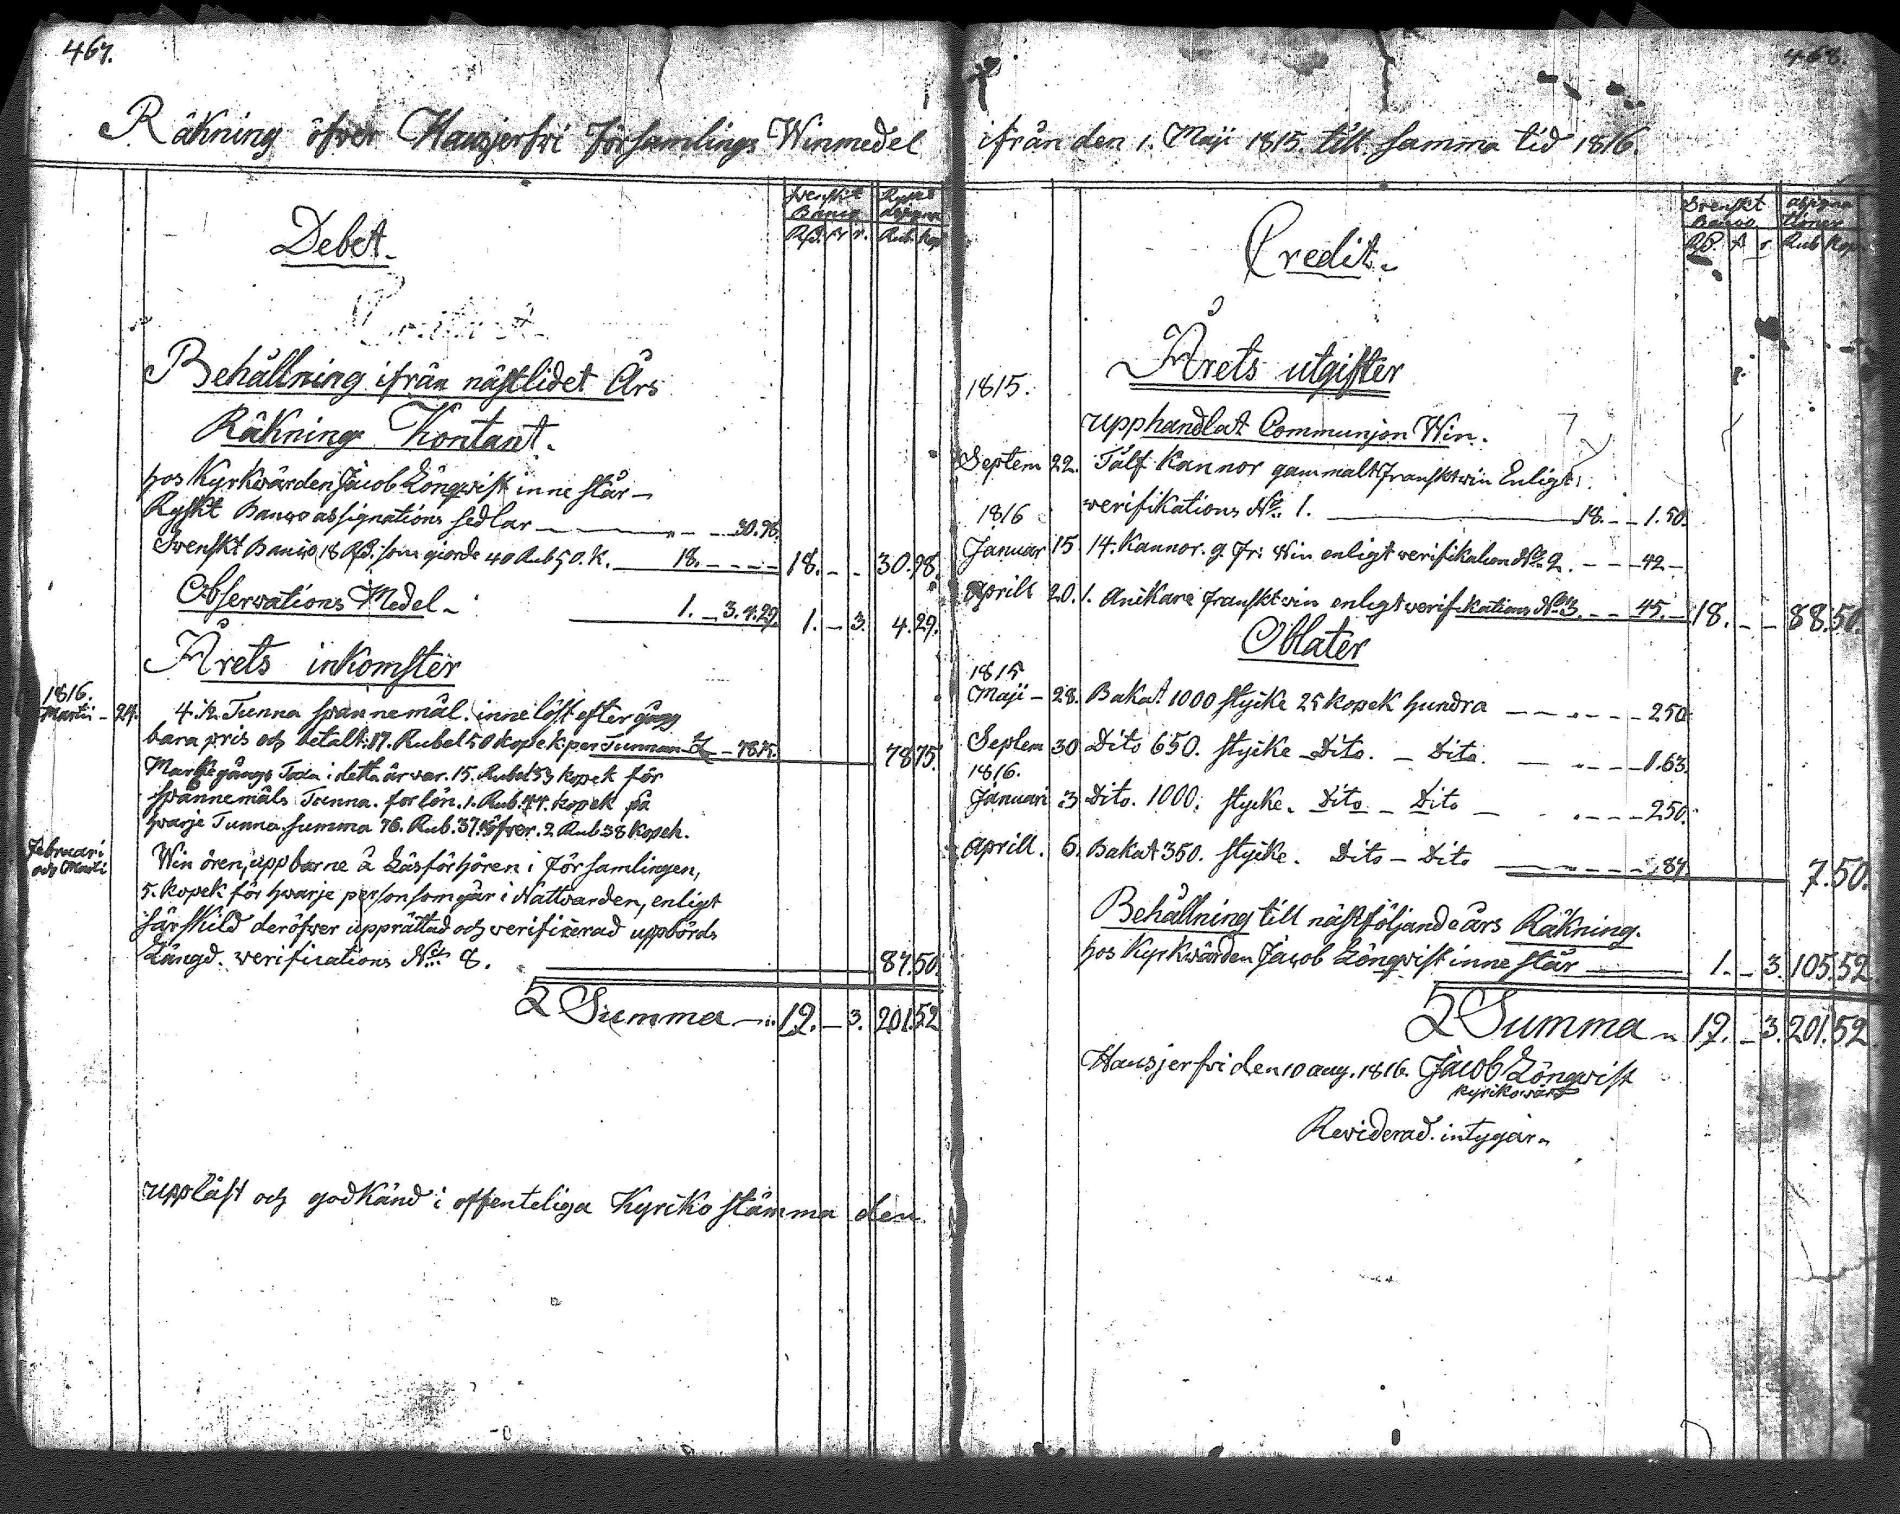 467.
Räkning öfver Hausjerfvi Församlings Winmedel
Debet.
Svenskt Banco
Rd. s. r.
Rub. Kop
Behållning ifrån nästlidet Års
Räkning Kontant.
hos Kyrkvärden Jacob Lönqvist inne står —
Ryskt Banco assignations sedlar — 30.98.
Svenskt Banco 18 Rd. som giorde 40 Rub 50. K. — 18. — 18. — 30.98.
Observations Medel — 1. — 3. 4.29. 1. — 3. 4.29.
Årets inkomster
1816.
Martii — 24. 4.½ Tunna spannemål. inne löst efter gång
bara pris och betalt: 17. Rubel 50 kopek per Tunnan — 78.75. 78.75.
Markegångs Taxa i detta år var. 15. Rubel 53 kopek för
spannemåls Tunna. forlön. 1. Rub. 44. kopek på
hvarje Tunna. summa 76. Rub. 37. öfver. 2 Rub 38 kopek.
Februari
och Marti
Win ören, uppbarne å Läsförhören i Församlingen,
5. kopek för hvarje person som går i Nattvarden, enligt
särskild deröfver upprättad och verificerad uppbörds
Längd. verifications No. 8. 87.50.
Summa — 19. — 3. 201.52
uppläst och godkänd i offenteliga Kyriko stämma den
468.
ifrån den 1. Maji 1815. till samma tid 1816.
Credit.
Svenskt Banco
Rd. s. r. Rub Kop
1815. Årets utgifter
upphandlat Communjon Win.
Septem 22. Tålf Kannor gammalt Franskt win Enligt
verifikations No. 1. — 18. — 1.50.
1816
Januar 15 14. Kannor. g. Fr: Win enligt verifikation No. 2. — 42 —
Aprill 20. 1. Ankare Franskt win enligt verifikations No. 3. — 45. — 18. — 88.50.
Oblater
1815
Maji — 28. Bakat 1000 stycke 25 kopek hundra — 250
Septem 30 Dito 650. stycke Dito. — Dito. — 1.63.
1816.
Januari 3 Dito. 1000. stycke. Dito — Dito — 250.
Aprill. 6. Bakat 350. stycke. Dito — Dito — 87 7.50.
Behållning till nästföljande års Räkning.
hos Kyrkvärden Jacob Lönqvist inne står — 1. — 3. 105.52
Summa 19. — 3. 201.52
Hausjerfvi den 10 aug. 1816. Jacob Lönqvist
kyrikovärd
Reviderad. intygar